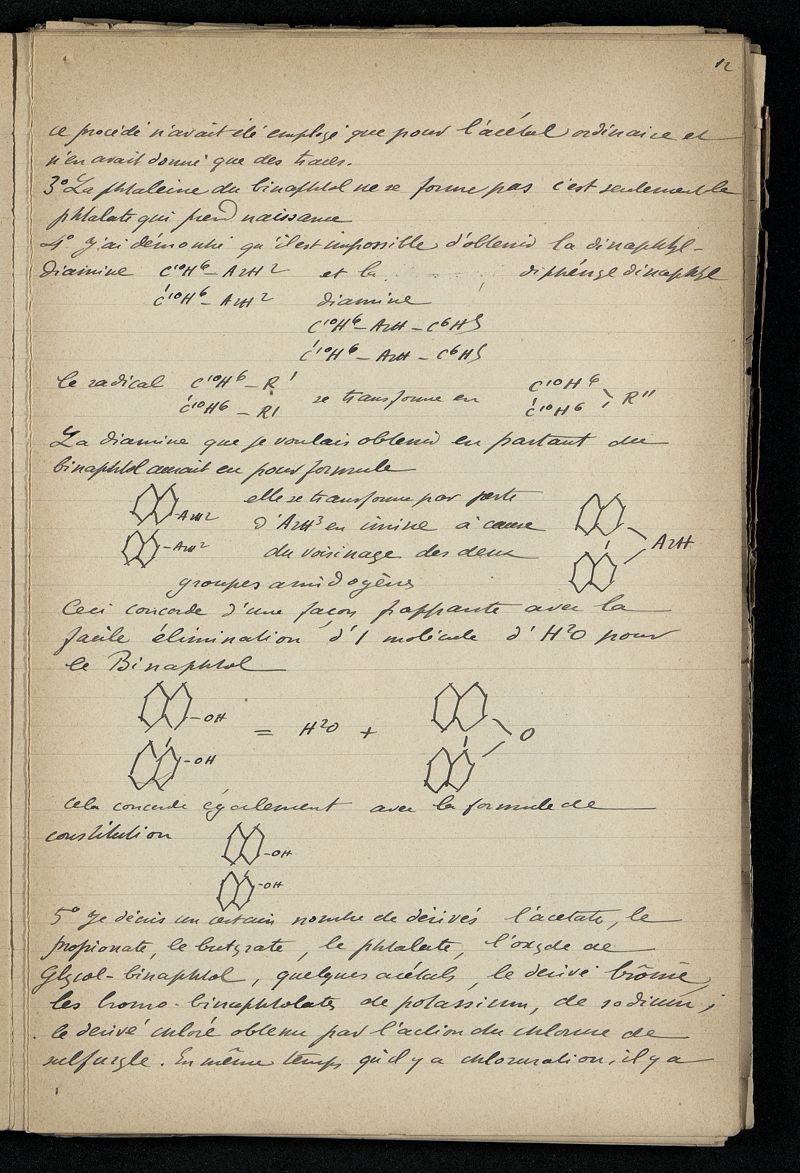 12
ce procédé n'avait été employé que pour l'acétal ordinaire et
n'en avait donné que des traces.
3° La phtaleine du binaphtol ne se forme pas c'est seulement le
phtalate qui prend naissance
4° J'ai démontré qu'il est impossible d'obtenir la dinaphtyl-
diamine C¹⁰H⁶-AzH² et la diphényldinaphtyl
C¹⁰H⁶-AzH² diamine
C¹⁰H⁶-AzH-C⁶H⁵
C¹⁰H⁶-AzH-C⁶H⁵
le radical C¹⁰H⁶-R' se transforme en C¹⁰H⁶ R''
C¹⁰H⁶-R' C¹⁰H⁶
La diamine que je voulais obtenir en partant du
binaphtol aurait eu pour formule
-AzH² elle se transforme par perte
d'AzH³ en imine à cause AzH
-AzH² du voisinage des deux
groupes amidogènes
Ceci concorde d'une façon frappante avec la
facile élimination d'1 molécule d'H²O pour
le Binaphtol
-OH = H²O + O
-OH
cela concorde également avec la formule de
constitution
-OH
-OH
5° Je décris un certain nombre de dérivés l'acétate, le
propionate, le butyrate, le phtalate, l'oxyde de
Glycol-binaphtol, quelques acétals, le dérivé bromé,
les bromo-binaphtolates de potassium, de sodium;
le dérivé chloré obtenu par l'action du chlorure de
sulfuryle. En même temps qu'il y a chloruration, il y a